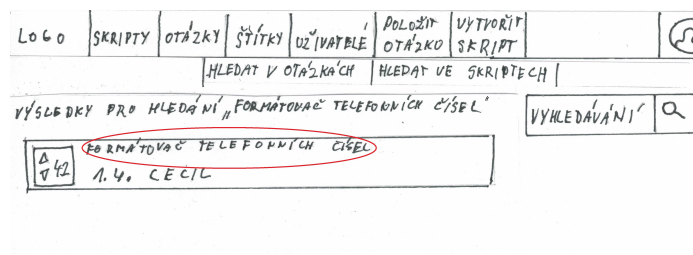 LOGO SKRIPTY OTÁZKY ŠTÍTKY UŽIVATELÉ POLOŽIT OTÁZKO VYTVOŘIT SKRIPT
HLEDAT V OTÁZKÁCH HLEDAT VE SKRIPTECH
VÝSLEDKY PRO HLEDÁNÍ „FORMÁTOVAČ TELEFONNÍCH ČÍSEL“
VYHLEDÁVÁNÍ
FORMÁTOVAČ TELEFONNÍCH ČÍSEL
42
1.4. CECIL